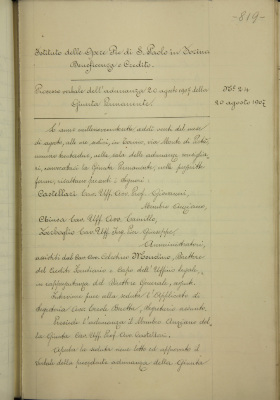 -819-
Istituto delle Opere Pie di S. Paolo in Torino
Beneficenza e Credito.
Processo verbale dell'adunanza 20 agosto 1907 della
Giunta Permanente
N° 24
20 agosto 1907
L'anno millenovecentosette, addì venti del mese
di agosto, alle ore sedici, in Torino, via Monte di Pietà,
numero trentadue, nella sala delle adunanze consigliari,
Giunta Permanente, nelle prescritte
forme, presenti i signori:
Castellari Cav. Uff. Avv. Prof. Giovanni,
Membro Anziano,
Chiesa Cav. Uff. Avv. Camillo,
Cav. Uff. Ing. Giuseppe,
Amministratori,
assistiti dal Cav. Avv. Mondino, Direttore
del Credito Fondiario e Capo dell'Ufficio legale,
in rappresentanza del Direttore Generale,
funge alla seduta l'Applicato di
Segreteria Segretario
Presiede l'adunanza il Membro Anziano della
Giunta Cav. Uff. Prof. Avv. Castellari.
Aperta la seduta viene letto ed approvato il
verbale della precedente adunanza della Giunta